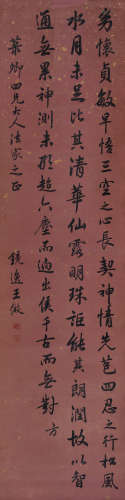 夯懷貞敏早悟三空之心長契神情先苞四忍之行松風
水月未足比其清華仙露明珠詎能其朗潤故以智
通無累神測未形超六塵而迥出復千古而無對方
葉卿四兄大人法家之正
鏡逸王傚